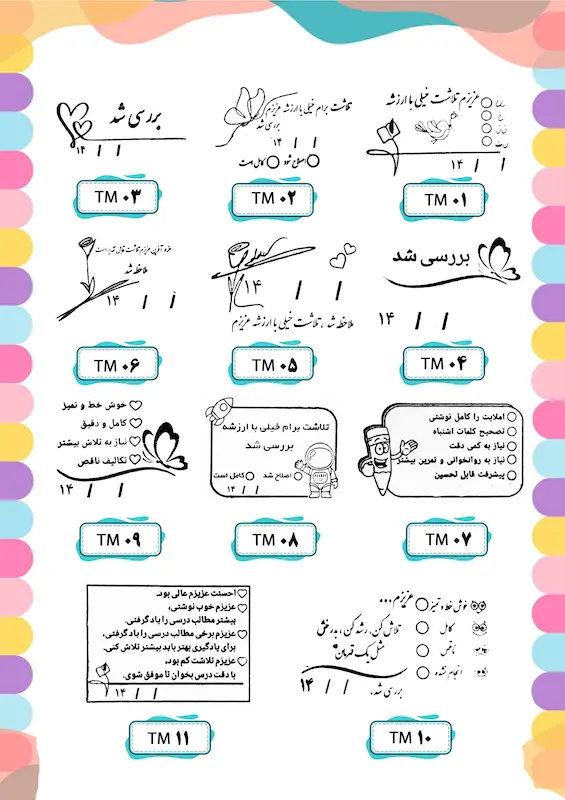 عزیزم تلاشت خیلی با ارزشه
۱۴ / /
TM ۰۱
تلاشت برام خیلی با ارزشه عزیزم
بررسی شد
۱۴ / /
اصلاح شود
کامل است
TM ۰۲
بررسی شد
۱۴ / /
TM ۰۳
بررسی شد
۱۴ / /
TM ۰۴
۱۴ / /
ملاحظه شد ، تلاشت خیلی با ارزشه عزیزم
TM ۰۵
ملاحظه شد
۱۴ / /
TM ۰۶
املایت را کامل نوشتی
تصحیح کلمات اشتباه
نیاز به کمی دقت
نیاز به روانخوانی و تمرین بیشتر
پیشرفت قابل تحسین
TM ۰۷
تلاشت برام خیلی با ارزشه
بررسی شد
اصلاح شد
کامل است
۱۴ / /
TM ۰۸
خوش خط و تمیز
کامل و دقیق
نیاز به تلاش بیشتر
تکالیف ناقص
۱۴ / /
TM ۰۹
خوش خط و تمیز
کامل
ناقص
انجام نشده
عزیزم...
تلاش کن، رشد کن، بدرخش
مثل یک قهرمان
بررسی شد.
۱۴ / /
TM ۱۰
احسنت عزیزم عالی بود.
عزیزم خوب نوشتی،
بیشتر مطالب درسی را یاد گرفتی.
عزیزم برخی مطالب درسی را یاد گرفتی،
برای یادگیری بهتر باید بیشتر تلاش کنی.
عزیزم تلاشت کم بود،
با دقت درس بخوان تا موفق شوی.
۱۴ / /
TM ۱۱